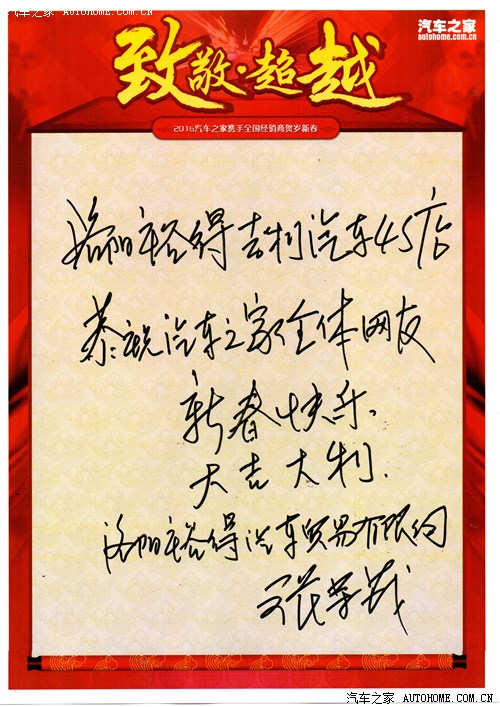 汽车之家
autohome.com.cn
致敬·超越
2016汽车之家携手全国经销商贺岁新春
洛阳裕得吉利汽车4S店
恭祝汽车之家全体网友
新春快乐、
大吉大利.
洛阳裕得汽车贸易有限公司
汽车之家 AUTOHOME.COM.CN